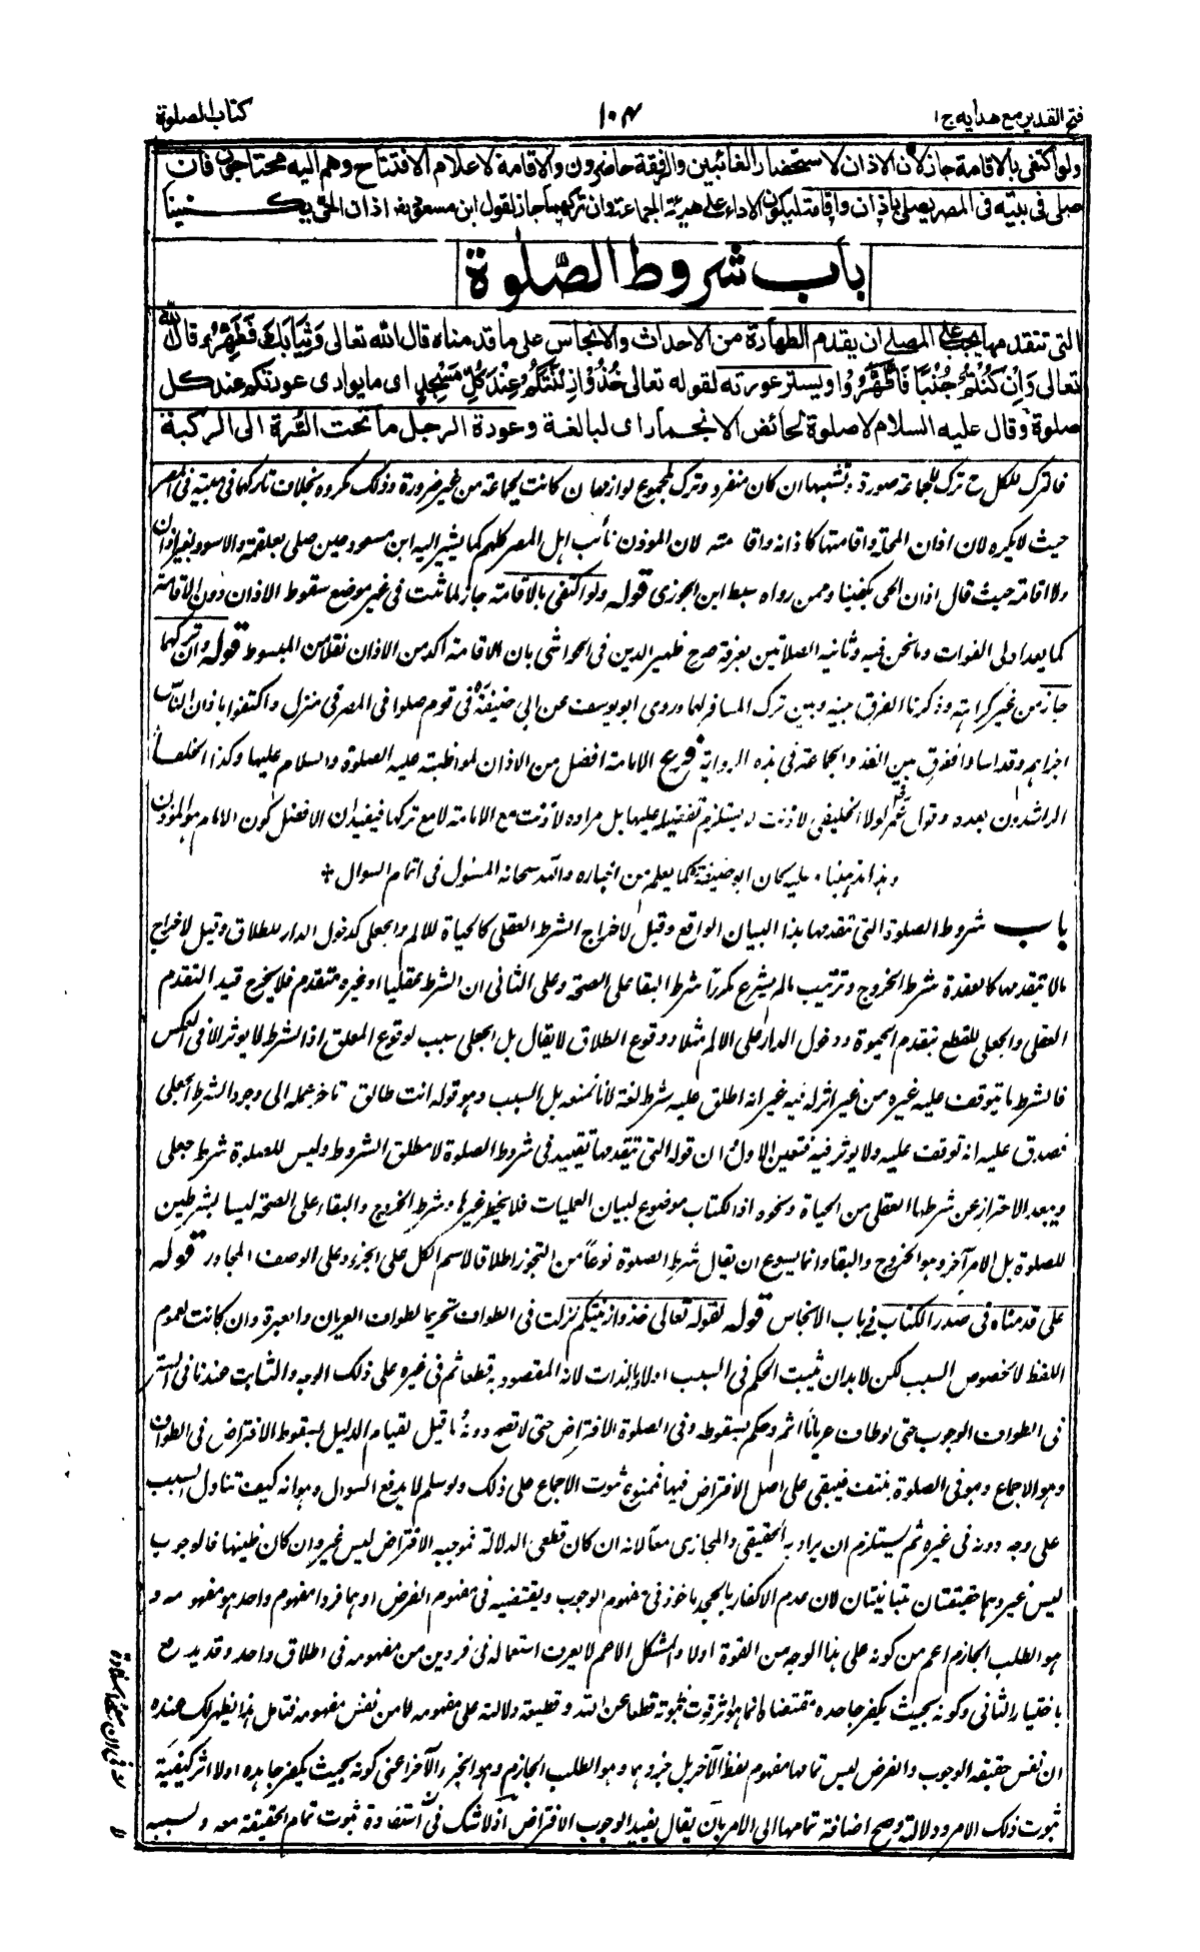 فتح القدير مع هدايه ج۱
۱۰۴
كتاب الصلوة
ولو اكتفى بالاقامة جاز لان الاذان لاستحضار الغائبين والرفقة حاضرون والاقامة لاعلام الافتتاح وهم اليه محتاجون فان
صلى فى بيته فى المصر يصلى باذان واقامة ليكون الاداء على هيئة الجماعة وان تركهما جاز لقول ابن مسعود رض اذان الحى يكفينا
باب شروط الصلوة
التى تتقدمها يجب على المصلى ان يقدم الطهارة من الاحداث والانجاس على ما قدمناه قال الله تعالى وَثِيَابَكَ فَطَهِّرْ وقال الله
تعالى وَاِنْ كُنْتُمْ جُنُبًا فَاطَّهَّرُوْا ويستر عورته لقوله تعالى خُذُوْا زِيْنَتَكُمْ عِنْدَ كُلِّ مَسْجِدٍ اى ما يوارى عورتكم عند كل
صلوة وقال عليه السلام لا صلوة لحائض الا بخمار اى لبالغة وعورة الرجل ما تحت السُّرة الى الركبة
فالترك للكل ح ترك للجماعة صورة وتشبها ان كان منفردا وترك لمجموع لوازمها ان كانت بجماعة من غير ضرورة وذلك مكروه بخلاف تاركهما فى بيته فى المصر
حيث لا يكره لان اذان المحلة واقامتها كاذانه واقامته لان الموذن نائب اهل المصر كلهم كما يشير اليه ابن مسعود حين صلى بعلقمة والاسود بغير اذان
ولا اقامة حيث قال اذان الحى يكفينا وممن رواه سبط ابن الجوزى قوله ولو اكتفى بالاقامة جاز لما ثبت فى غير موضع سقوط الاذان دون الاقامة
كما بعد اولى الفوائت وما نحن فيه وثانية الصلاتين بعرفة صرح ظهير الدين فى الحواشى بان الاقامة آكد من الاذان نقلا من المبسوط قوله وان تركهما
جاز من غير كراهة وذكرنا الفرق بينه وبين ترك المسافر لهما وروى ابو يوسف عن ابى حنيفة رح فى قوم صلوا فى المصر فى منزل واكتفوا باذان الناس
اجزاهم وقد اساوا ففرق بين الفذ والجماعة فى هذه الرواية فروع الامامة افضل من الاذان لمواظبته عليه الصلوة والسلام عليها وكذا الخلفاء
الراشدون بعده وقول عمر رض لولا الخليفى لاذنت لا يستلزم تفضيله عليها بل مراده لاذنت مع الامامة لا مع تركها فيفيد ان الافضل كون الامام هو الموذن
وهذا مذهبنا وعليه كان ابو حنيفة رح كما يعلم من اخباره والله سبحانه المسئول فى اتمام السوال *
باب شروط الصلوة التى تتقدمها هذا البيان الواقع وقيل لاخراج الشرط العقلى كالحياة للالم والجعلى كدخول الدار للطلاق وقيل لاخراج
ما لا يتقدمها كالقعدة شرط الخروج وترتيب ما لم يشرع مكررا شرط البقاء على الصحة وعلى الثانى ان الشرط عقليا او غيره متقدم فلا يخرج قيد التقدم
العقلى والجعلى للقطع بتقدم الحيوة ودخول الدار على الالم مثلا ووقوع الطلاق لا يقال بل الجعلى سبب لوقوع المعلق اذ الشرط لا يوثر الا فى العكس
فالشرط ما يتوقف عليه غيره من غير اثر له فيه غير انه اطلق عليه شرط لغة لانا نمنعه بل السبب وهو قوله انت طالق تاخر عمله الى وجود الشرط الجعلى
فصدق عليه انه توقف عليه ولا يوثر فيه فتعين الاول ان قوله التى تتقدمها تقييد فى شروط الصلوة لا مطلق الشروط وليس للصلوة شرط جعلى
ويبعد الاحتراز عن شرطها العقلى من الحياة ونحوه اذ الكتاب موضوع لبيان العمليات فلا يخطر غيرها وشرط الخروج والبقاء على الصحة ليسا بشرطين
للصلوة بل لامر آخر وهو الخروج والبقاء وانما يسوغ ان يقال شرط الصلوة نوعا من التجوز اطلاقا لاسم الكل على الجزء وعلى الوصف المجاور قوله
على ما قدمناه فى صدر الكتاب فى باب الانجاس قوله لقوله تعالى خذوا زينتكم نزلت فى الطواف تحريما لطواف العريان والعبرة وان كانت لعموم
اللفظ لا لخصوص السبب لكن لا بد ان يثبت الحكم فى السبب اولا بالذات لانه المقصود به قطعا ثم فى غيره على ذلك الوجه والثابت عندنا فى الستر
فى الطواف الوجوب حتى لو طاف عريانا اثم وحكم بسقوطه وفى الصلوة الافتراض حتى لا تصح دونه ما قيل لقيام الدليل بسقوط الافتراض فى الطواف
وهو الاجماع وهو فى الصلوة منتف فيبقى على اصل الافتراض فيها فممنوع ثبوت الاجماع على ذلك ولو سلم لا يدفع السوال وهو انه كيف تناول السبب
على وجه دونه فى غيره ثم يستلزم ان يراد به الحقيقى والمجازى معا لانه ان كان قطعى الدلالة فموجبه الافتراض ليس غير وان كان ظنيها فالوجوب
ليس غير وهما حقيقتان متباينتان لان عدم الاكفار بالجحد ماخوذ فى مفهوم الوجوب ونقيضه فى مفهوم الفرض او هما فردا مفهوم واحد هو مفهومه و
هو الطلب الجازم اعم من كونه على هذا الوجه من القوة اولا والمشكل الاعم لا يعرف استعماله فى فردين من مفهومه فى اطلاق واحد وقد يدفع
باختيار الثانى وكونه بحيث يكفر جاحده مقتضاه انما هو اثر قوت ثبوته قطعا عن الله وقطعية دلالته على مفهومه لا من نفس مفهومه فتامل هذا يظهر لك عنده
ان نفس حقيقة الوجوب والفرض ليس تمامها مفهوم لفظ الآخر بل جزوهما وهو الطلب الجازم وهو الجزء الآخر اعنى كونه بحيث يكفر جاحده اولا اثر كيفية
ثبوت ذلك الامر ودلالته وصح اضافة تمامها الى الامر بان يقال يفيد الوجوب الافتراض اذ لا شك فى استفادة ثبوت تمام الحقيقة معه وبسببه